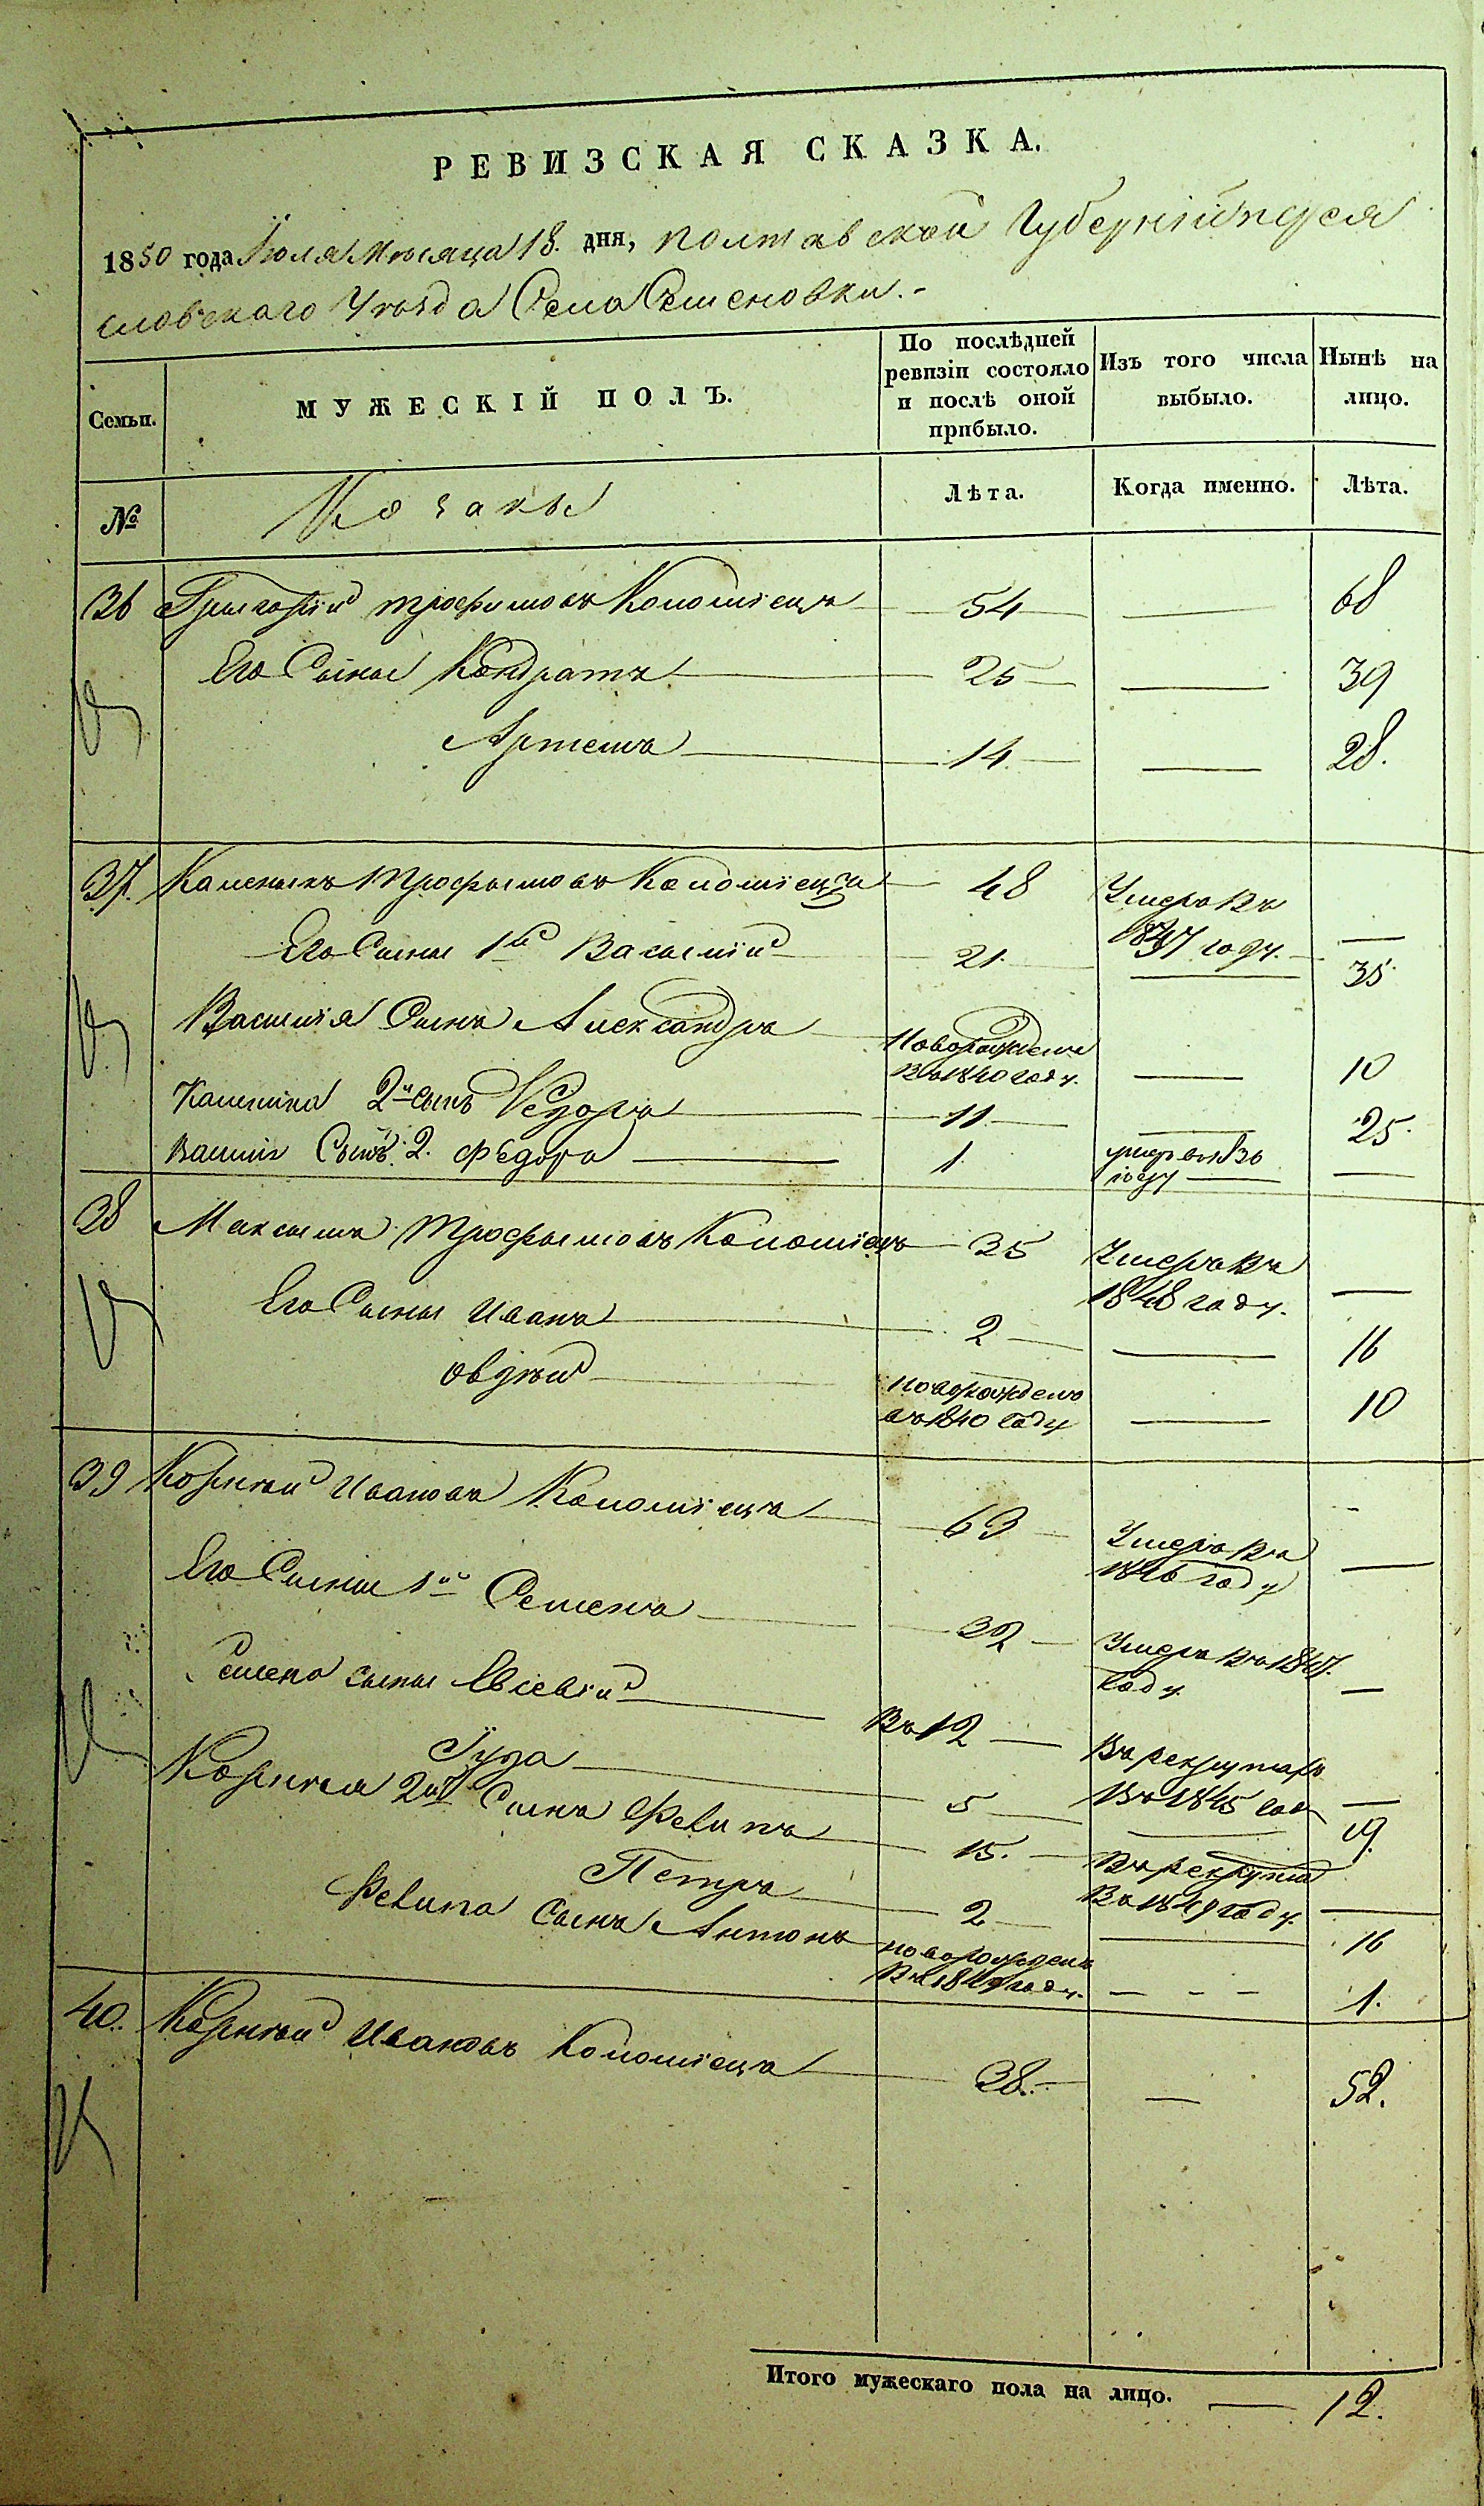 РЕВИЗСКАЯ СКАЗКА.
1850 года Іюля Мѣсяца 18. дня, Полтавской Губерніи Перея
словскаго Уѣзда Села Семеновки.-
Семьи. МУЖЕСКІЙ ПОЛЪ. По послѣдней ревизіи состояло и послѣ оной прибыло. Изъ того числа выбыло. Нынѣ на лицо.
№ Козаки Лѣта. Когда именно. Лѣта.
36 Григорій Трофимовъ Коломіецъ 54 — 68
Его Сыны Кондратъ 25 — 39
Артемъ 14 — 28.
37. Каленикъ Трофымовъ Коломіецъ 48 Умеръ въ 1847 году. —
Его Сыны 1й Василій 21. — 35.
Василія Сынъ Александръ Новорожденъ въ 1840 году. — 10
2й сынъ Ѳедоръ 11 — 25.
Сынъ 2. Федоръ 1 умеръ —
38 Максымъ Трофымовъ Коломіецъ 35 Умеръ въ 1848 году. —
Его Сыны Иванъ 2 — 16
Овдѣй новорожденъ въ 1840 году — 10
39 Корнѣй Ивановъ Коломіецъ 63 Умеръ въ 1846 году —
Его Сыны 1й Семенъ 32 Умеръ въ 1847. году. —
Семена сыны Евсевій 12 Въ рекрутахъ въ 1845 —
Іуда 5 — 19.
Корнѣя 2й Сынъ Филипъ 15. Въ рекруты въ 1849 году. —
Петръ 2 — 16
Филипа Сынъ Антонъ новорожденъ въ 1849 году. - - - 1.
40. Корнѣй Ивановъ Коломіецъ 38. — 52.
Итого мужескаго пола на лицо. — 12.